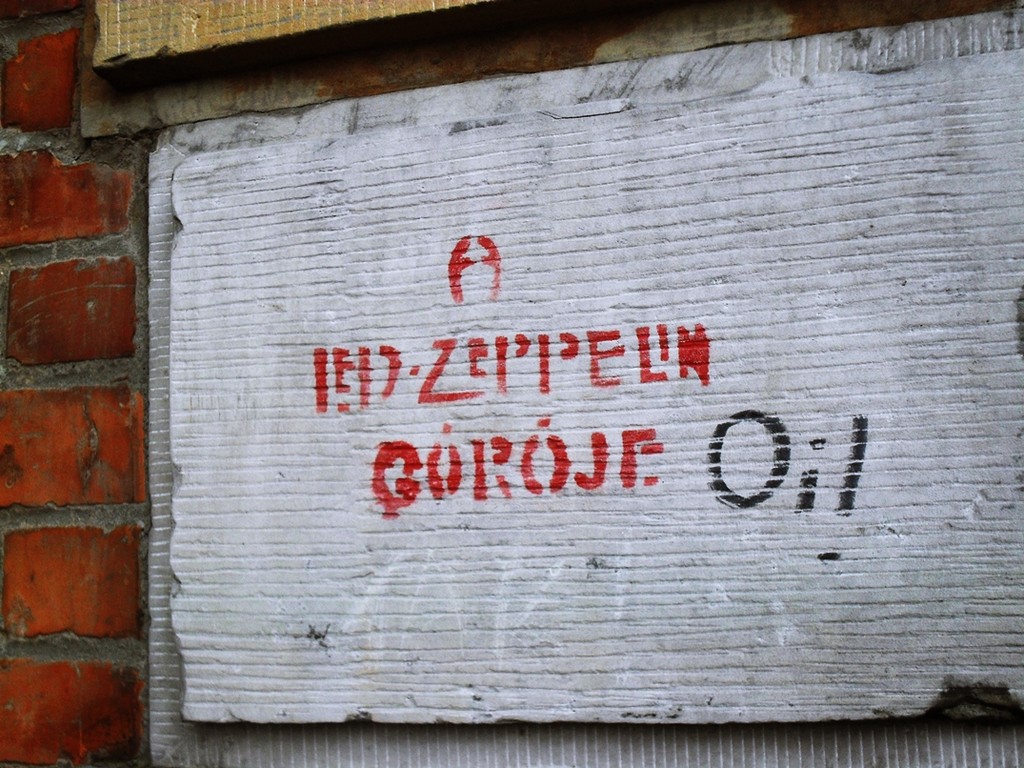 A
LED-ZEPPELIN
GÓRÓJE Oil